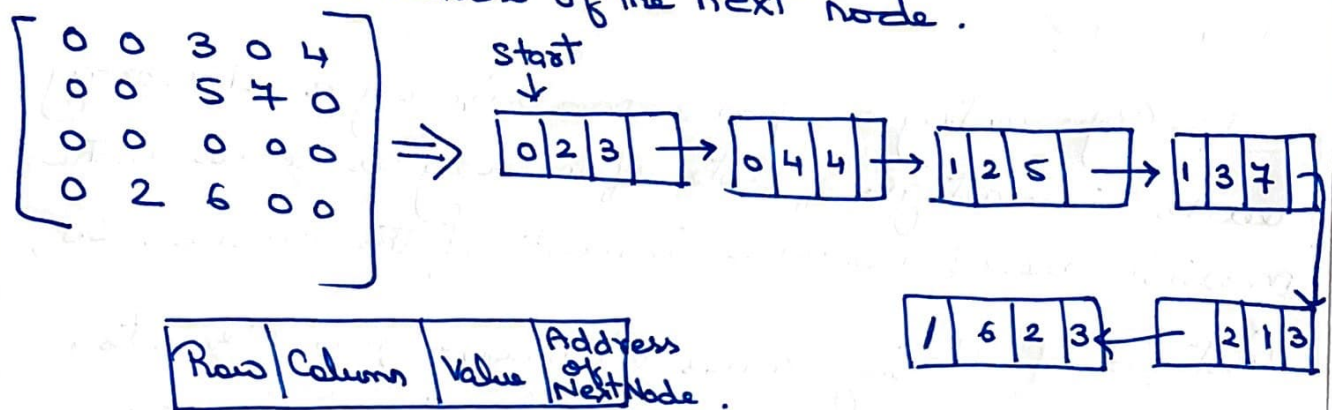 of the next node.
0 0 3 0 4
0 0 5 7 0
0 0 0 0 0
0 2 6 0 0
⇒
start
↓
0 2 3 → 0 4 4 → 1 2 5 → 1 3 7
/ 6 2 3 ← 2 1 3
Row Column Value Address of Next Node.